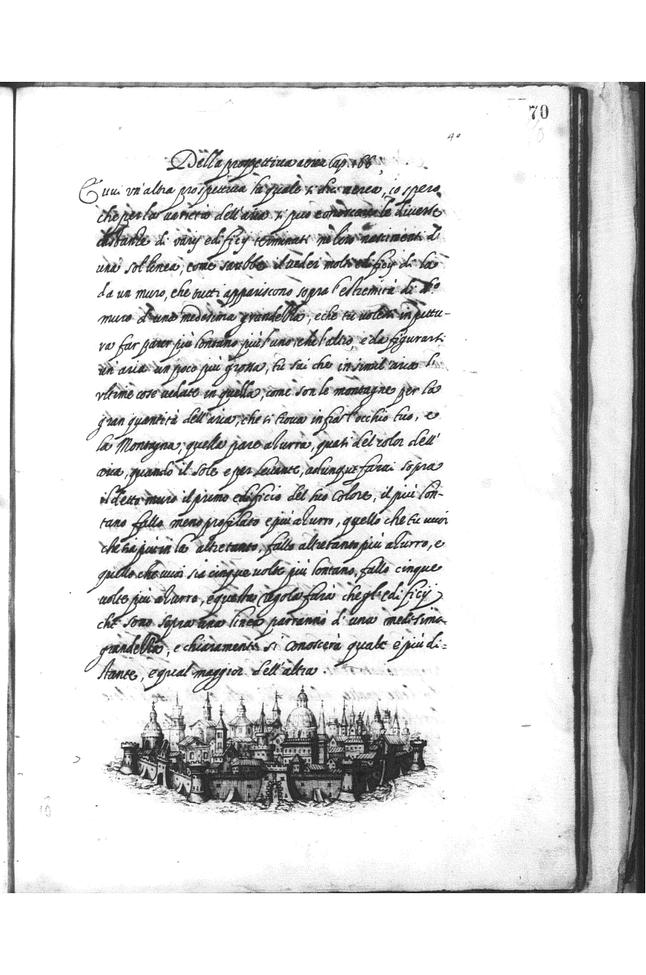 70
40
Della prospettiva aerea Cap. 166
Evui un'altra prospettiva la quale si dice aerea, io spero
che per la varieta dell'aria si puo conoscere le diverse
distanze di varij edificij terminati ne loro nascimenti d'
una sol linea, come sarebbe il veder molti edificij di la
da un muro, che tutti appariscono sopra l'estremità di do
muro d'una medesima grandezza, e che tu volessi in pittu-
ra far parer più lontano più l'uno che l'altro, e da figurarsi
un'aria un poco più grossa, tu sai che in simil aria le
ultime cose vedute in quella, come son le montagne per la
gran quantità dell'aria, che si trova infra l'occhio tuo, e
la Montagna, quella pare azurra, quasi del color dell'
aria, quando il sole e per Levante, adunque farai sopra
il detto muro il primo edificio del suo Colore, il più lon-
tano fallo meno profilato e più azurro, quello che tu vuoi
che sia più in la altretanto, fallo altretanto più azurro, e
quello che vuoi sia cinque volte più lontano, fallo cinque
volte più azurro, e questa regola farà che gl'edificij
che sono sopra una linea parranno d'una medesima
grandezza, e chiaramente si conoscerà quale e più di-
stante, e qual maggior dell'altra